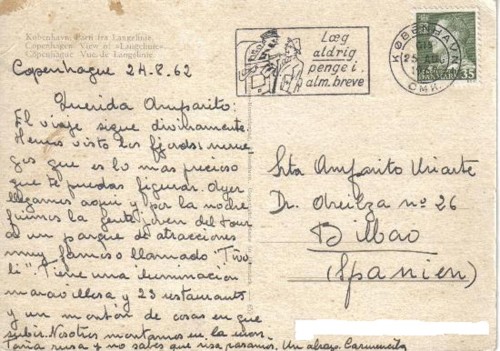 København. Parti fra Langelinie.
Copenhagen: View of »Langelinie«.
Copenhague: Vue de Langelinie.
Copenhague 24-8-62
Querida Amparito:
El viaje sigue divinamente.
Hemos visto los fjords norue-
gos que es lo mas precioso
que te puedas figurar. Ayer
llegamos aqui y por la noche
fuimos la gente joven del tour
a un parque de atracciones
muy famoso llamado "Tivo
li". Tiene una iluminación
maravillosa y 23 restaurants
y un montón de cosas en que
subir. Nosotros montamos en la mon-
taña rusa y no sabes que risa pasamos. Un abrazo. Carmencita
Læg
aldrig
penge i
alm. breve
KØBENHAVN
OMK.
35
Srta Amparito Uriarte
Dr. Areilza nº 26
Bilbao
(Spanien)